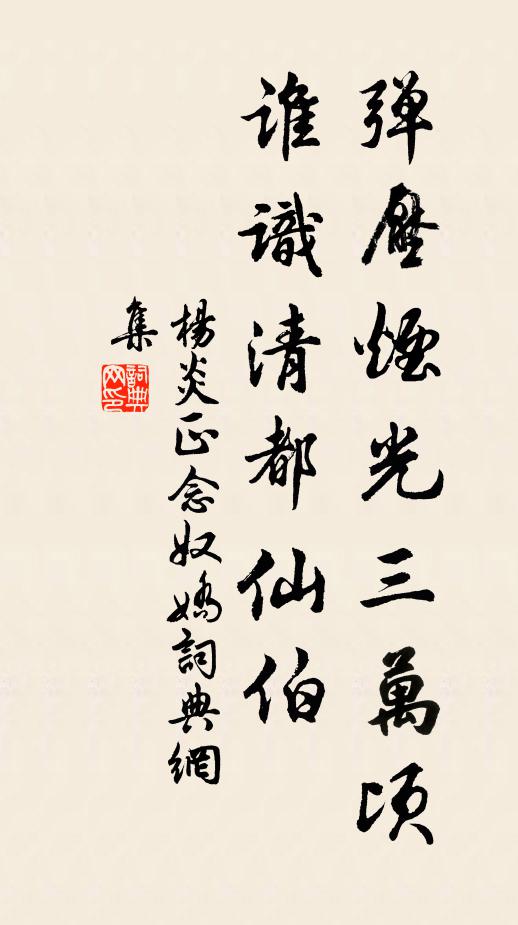 彈壓煙光三萬頃
誰識清都仙伯
楊炎正念奴嬌詞典網
集
詞典网印